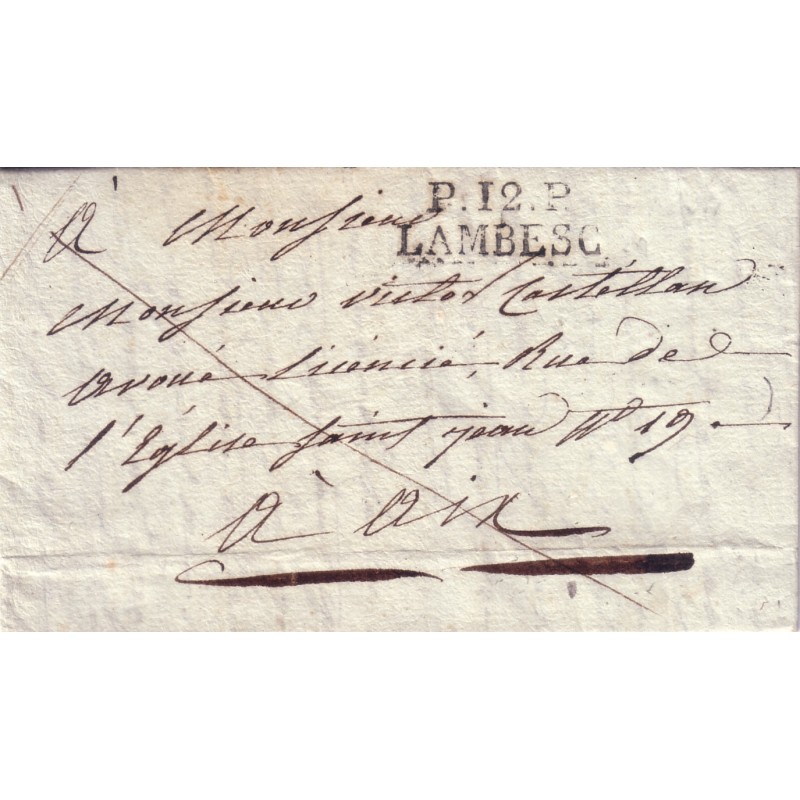 P.12.P
LAMBESC
A Monsieur
Monsieur victor Castellan
avoué licencié, Rue de
l'Église Saint jean N° 19
A Aix